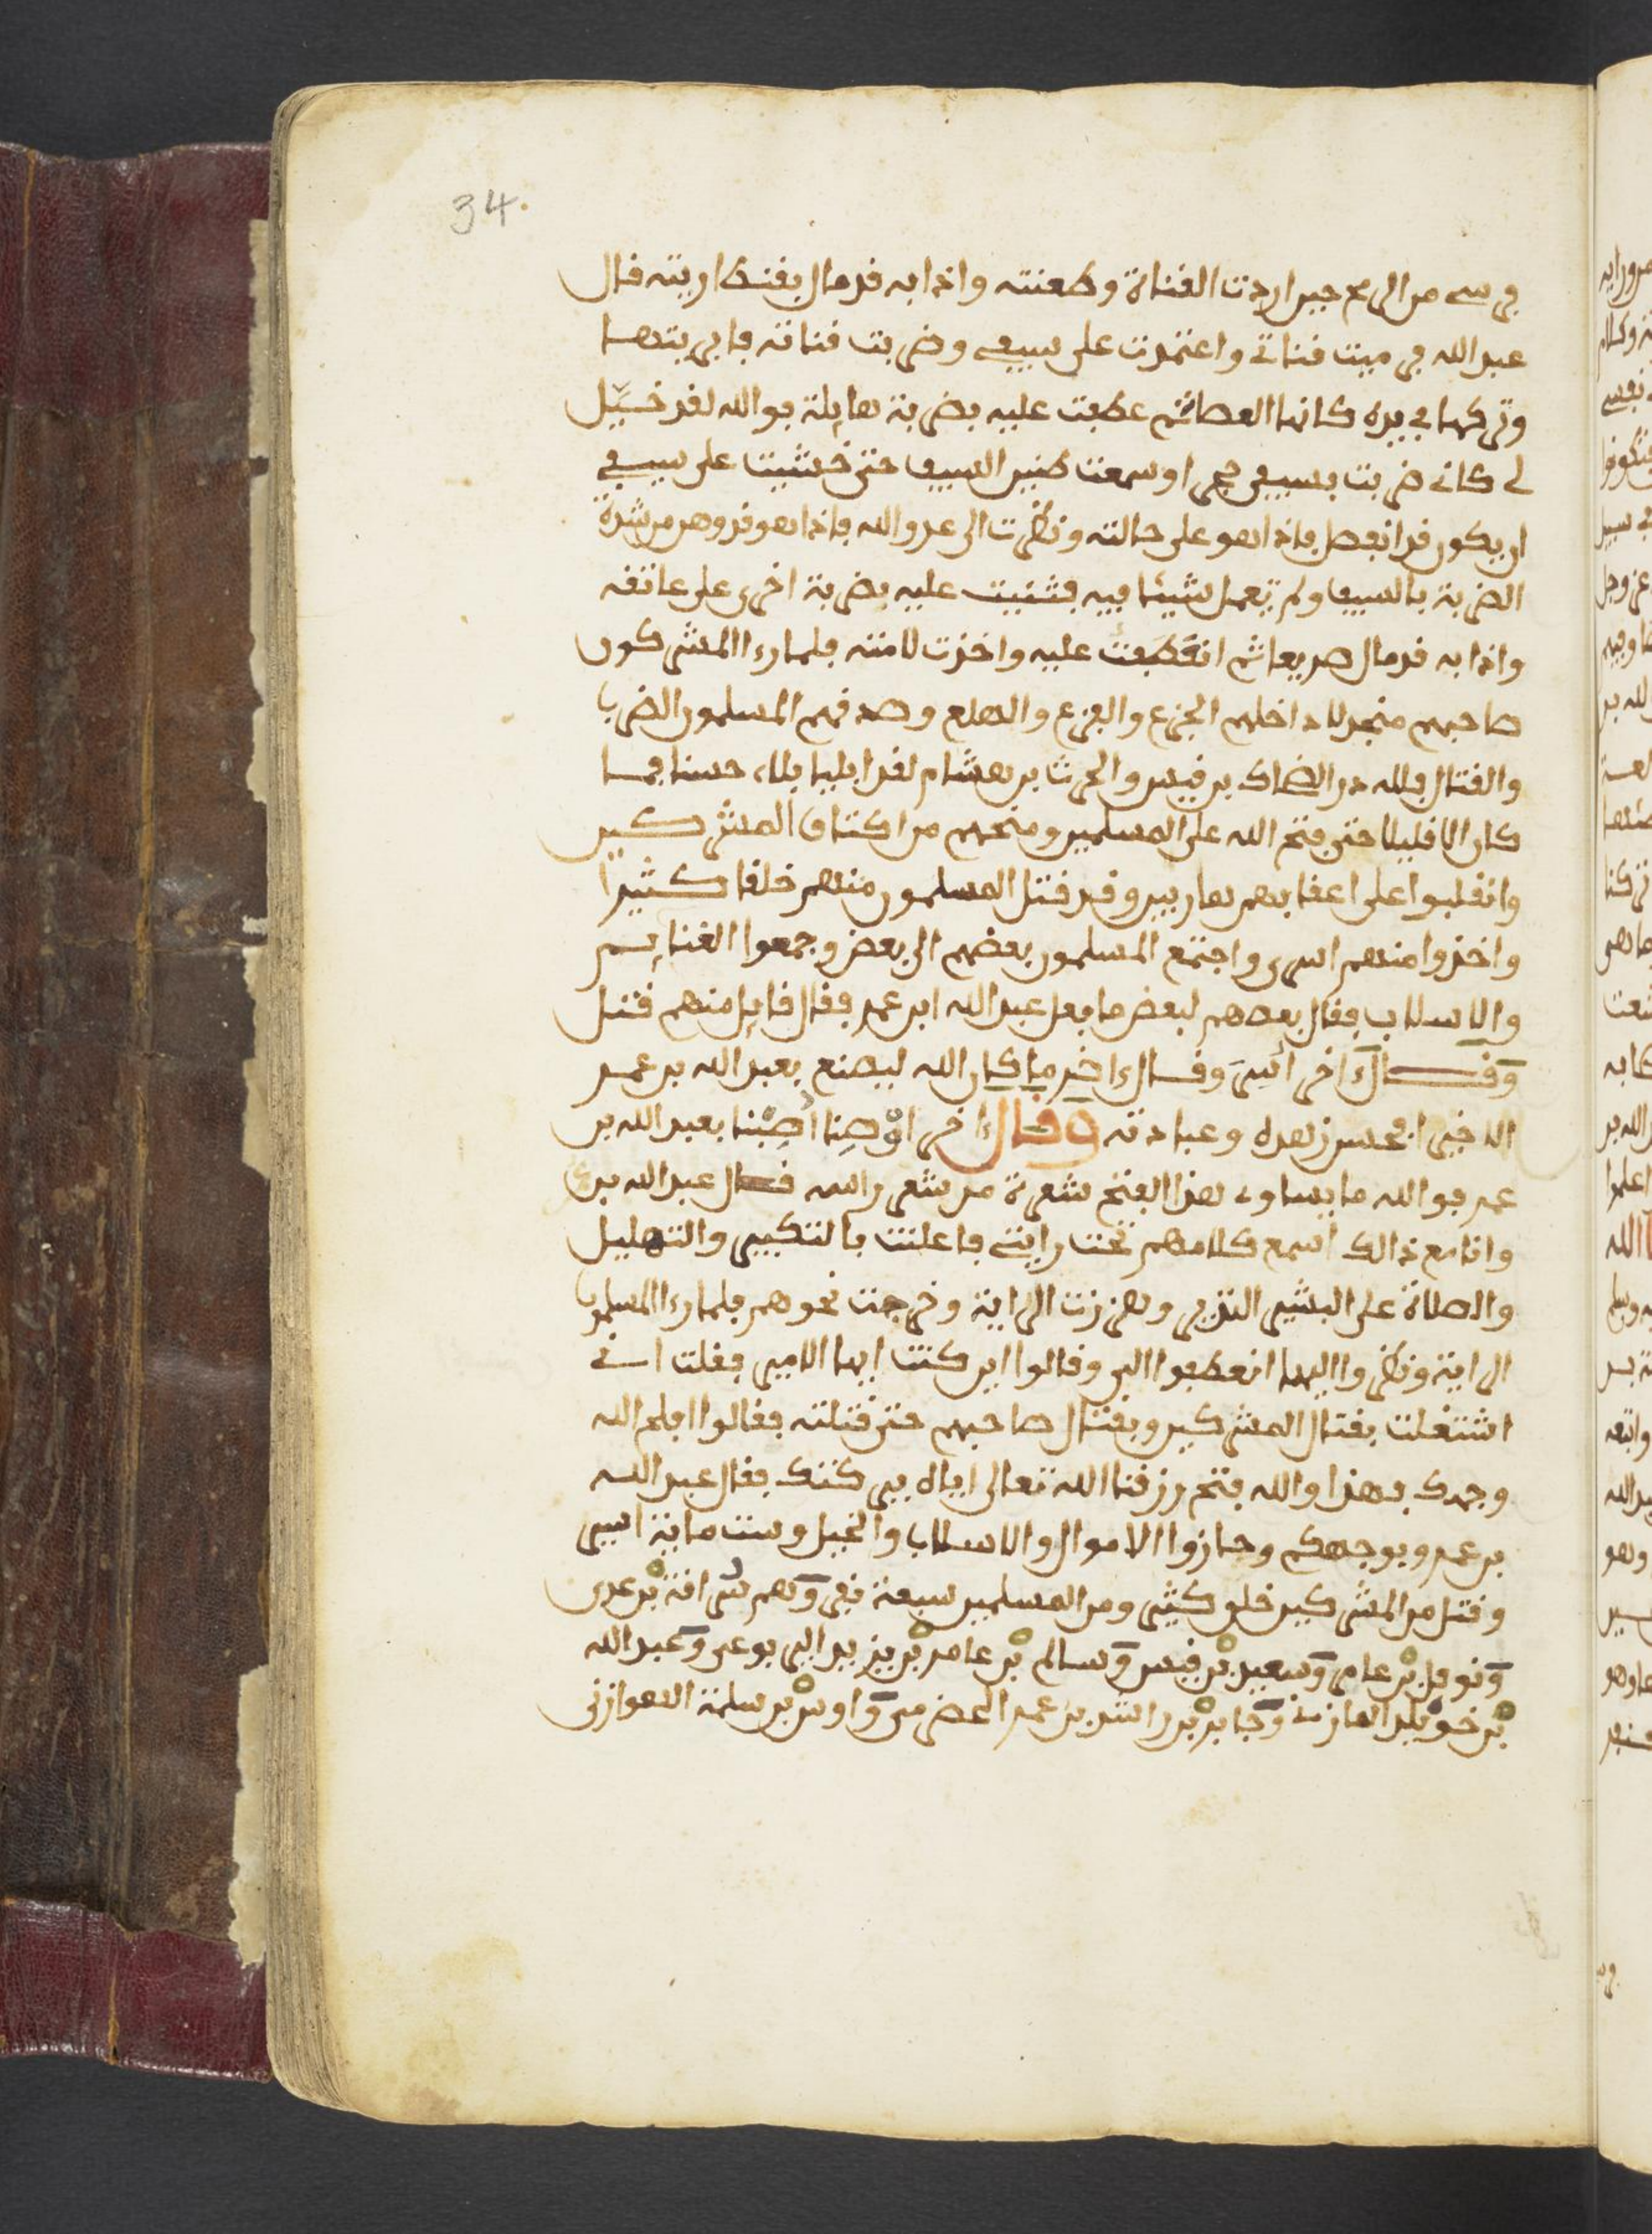 34.
فرسي من الرمح حين اردت القناة وطعنته واذا به قد مال بقنطاريته قال
عبد الله فرميت قناتي واعتمدت على سيفي وضربت قناته فابريتها
وتركها في يده كانها العصا ثم عطفت عليه بضربة هايلة فوالله لقد خيّل
لي كاني ضربت بسيفي حجرا وسمعت طنين السيف حتى خشيت على سيفي
ان يكون قد انفصل فاذا هو على حالته ونظرت الى عدو الله فاذا هو قد وهن من شدة
الضربة بالسيف ولم تعمل شيئا فيه فثنيت عليه بضربة اخرى على عاتقه
واذا به قد مال صريعا ثم انعطفت عليه واخذت لامته فلما رءا المشركون
صاحبهم منجدلا داخلهم الجزع والفزع والهلع وصدقهم المسلمون الضرب
والقتال فلله در الضحاك بن قيس والحرث بن هشام لقد ابليا بلاء حسنا فما
كان الا قليلا حتى فتح الله على المسلمين ومنحهم من اكتاف المشركين
وانقلبوا على اعقابهم هاربين وقد قتل المسلمون منهم خلقا كثيرا
واخذوا منهم اسرى واجتمع المسلمون بعضهم الى بعض وجمعوا الغنايم
والاسلاب فقال بعضهم لبعض ما فعل عبد الله ابن عمر فقال قايل منهم قتل
وقال ءاخر اسر وقال ءاخر ما كان الله ليصنع بعبد الله بن عمر
الا خيرا بحسن زهده وعبادته وقال ءاخر اوصنا اصبنا بعبد الله بن
عمر فوالله ما يساوي هذا الفتح شعرة من شعر راسه قال عبد الله بن ع
وانا مع ذالك اسمع كلامهم تحت رايتي فاعلنت بالتكبير والتهليل
والصلاة على البشير النذير وهززت الراية وخرجت نحوهم فلما رءا المسلمون
الراية ونظروا اليها انعطفوا الي وقالوا اين كنت ايها الامير فقلت اني
اشتغلت بقتال المشركين وبقتال صاحبهم حتى قتلته فقالوا افلح الله
وجهك فهذا والله فتح رزقنا الله تعالى اياه ببركتك فقال عبد الله
بن عمر وبوجهكم وحازوا الاموال والاسلاب والخيل وست ماية اسير
وقتل من المشركين خلق كثير ومن المسلمين سبعة نفر وهم سراقة بن عدي
ونوفل بن عامر وسعيد بن قيس وسالم بن عامر بن يزيد اليربوعي وعبد الله
بن خويلد المازني وجابر بن راشد بن عمر الحضرمي واوس بن سلمة الهوازني